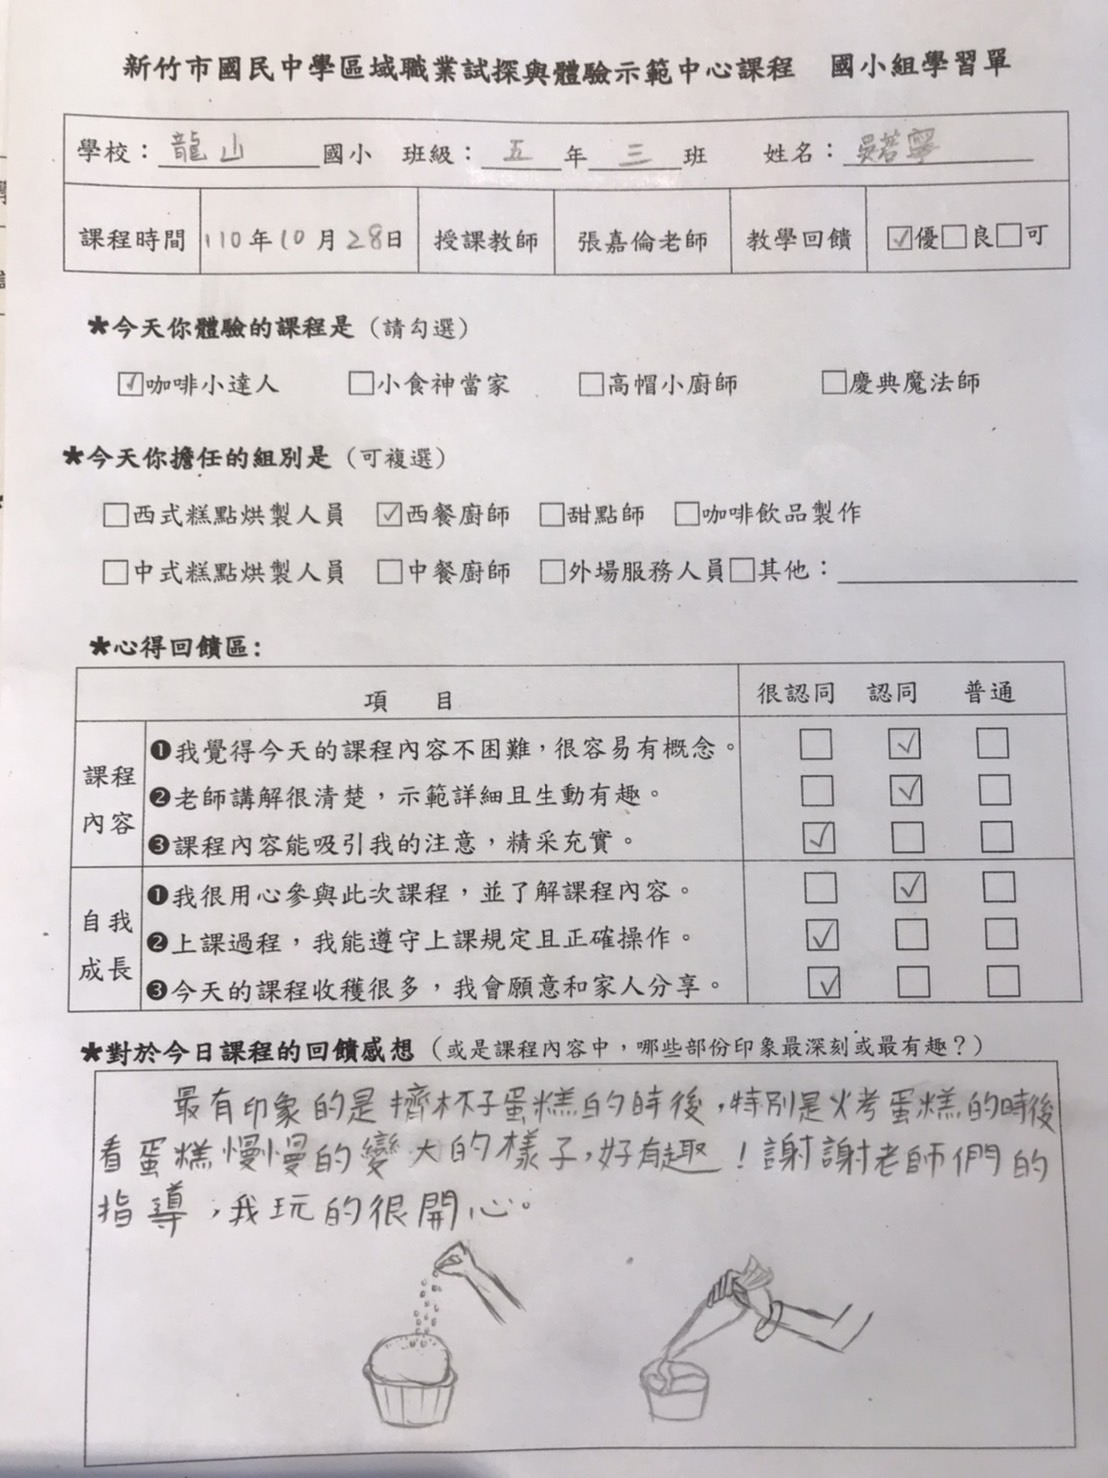 新竹市國民中學區域職業試探與體驗示範中心課程　國小組學習單
學校：龍山國小　班級：五年三班　姓名：吳若寧
課程時間　110年10月28日　授課教師　張嘉倫老師　教學回饋　☑優□良□可
★今天你體驗的課程是（請勾選）
☑咖啡小達人　□小食神當家　□高帽小廚師　□慶典魔法師
★今天你擔任的組別是（可複選）
□西式糕點烘製人員　☑西餐廚師　□甜點師　□咖啡飲品製作
□中式糕點烘製人員　□中餐廚師　□外場服務人員□其他：
★心得回饋區：
項　目　很認同　認同　普通
課程內容
❶我覺得今天的課程內容不困難，很容易有概念。　□　☑　□
❷老師講解很清楚，示範詳細且生動有趣。　□　☑　□
❸課程內容能吸引我的注意，精采充實。　☑　□　□
自我成長
❶我很用心參與此次課程，並了解課程內容。　□　☑　□
❷上課過程，我能遵守上課規定且正確操作。　☑　□　□
❸今天的課程收穫很多，我會願意和家人分享。　☑　□　□
★對於今日課程的回饋感想（或是課程內容中，哪些部份印象最深刻或最有趣？）
最有印象的是擠杯子蛋糕的時後，特別是烤蛋糕的時後
看蛋糕慢慢的變大的樣子，好有趣！謝謝老師們的
指導，我玩的很開心。